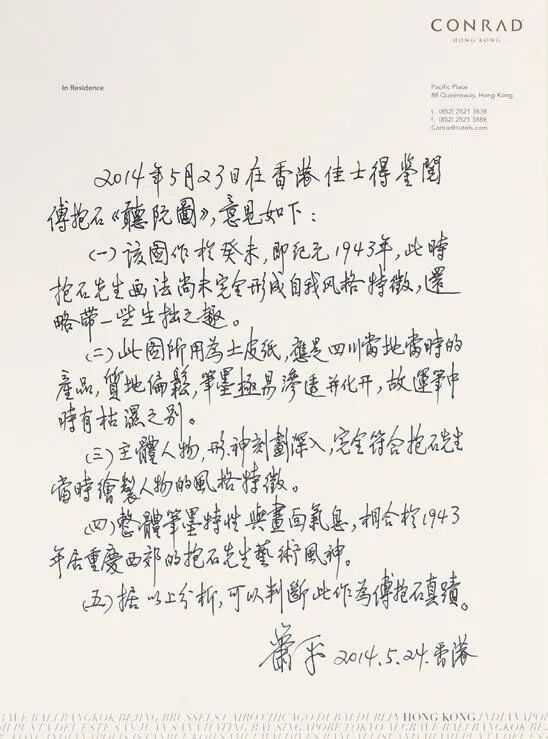 CONRAD
HONG KONG
In Residence
Pacific Place
88 Queensway, Hong Kong
t. (852) 2521 3838
f. (852) 2521 3888
ConradHotels.com
2014年5月23日在香港佳士得鉴閱
傅抱石《聽阮圖》,意見如下:
(一)该圖作於癸未,即纪元1943年,此時
抱石先生画法尚未完全形成自我风格特徵,還
略带一些生拙之趣。
(二)此圖所用為土皮纸,應是四川當地當時的
產品,質地偏鬆,筆墨極易滲透并化开,故運筆中
時有枯濕之别。
(三)主體人物,形神刻劃深入,完全符合抱石先生
當時繪製人物的風格特徵。
(四)整體筆墨特性與畫面氣息,相合於1943
年居重慶西郊的抱石先生藝術風神。
(五)据以上分析,可以判斷此作為傅抱石真蹟。
蕭平 2014.5.24.香港
BALI BANGKOK BEIJING BRUSSELS CAIRO CHICAGO DUBAI DUBLIN HONG KONG INDIANAPOLIS
PUNTA DEL ESTE SAN JUAN SANYA HAITANG BAY SINGAPORE TOKYO